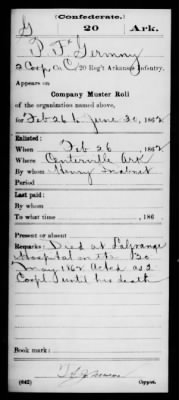 (Confederate.)
G 20 Ark.
P. F. Germany
2 Corp, Co. C, 20 Reg't Arkansas Infantry.
Appears on
Company Muster Roll
of the organization named above,
for Feb 26 to June 30, 1862
Enlisted:
When Feb 26, 1862
Where Centerville Ark
By whom Henry
Period
Last paid:
By whom
To what time , 186 .
Present or absent
Remarks: Died at LaGrange
Hospital on the 30
May 1862 Acted as 2
Corpl until his death
Book mark:
(642) Copyist.